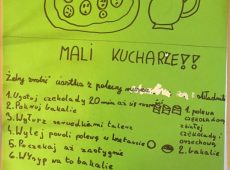 MALI KUCHARZE!!
Żeby zrobić ciastka z polewą
składniki
1. Ugotuj czekoladę 20 min aż się
2. Pokruj bakalie
3. Wytnij foremkami talerz
4. Wylej powoli polewę w
5. Poczekaj aż zastygnie
6. Wsyp na to bakalie
1. polewa
czekoladowa
białej
czekolady i
orzechowej
2. bakalie